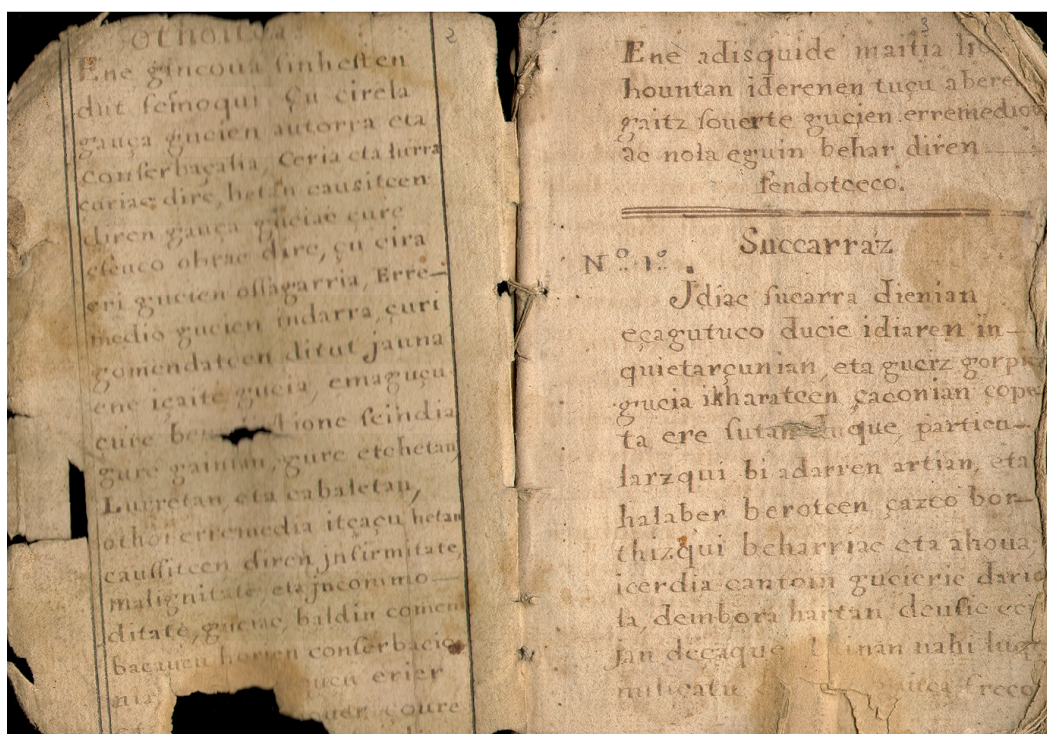 othoitça
2
Ene gincoua sinhesten
dut seinoqui Çu cirela
gauça gucien autorra eta
conserbaçalia, Ceria eta lurra
çuriac dire, hetan causitcen
diren gauça guciac çure
escuco obrac dire, çu cira
eri gucien ossagarria, Erre-
medio gucien indarra, çuri
gomendatcen ditut jauna
ene içaite gucia, emaguçu
çure ione seindia
gure gainian, gure etchetan
Lurretan eta cabaletan,
othoi erremedia itçaçu hetan
caussitcen diren jnfirmitate,
malignitate eta jncommo-
ditate, guciac, baldin comeni
horien conserbacio
erier
çoure
3
Ene adisquide maitia
hountan iderenen tuçu abere
gaitz souerte gucien erremedio
ac nola eguin behar diren
sendotceco.
Succarraz
Nº 1º.
Jdiac sucarra dienian
eçagutuco ducie idiaren in-
quietarçunian, eta guciz gorpitz
gucia ikharatcen çaconian cope-
ta ere sutan duque, particu-
larzqui bi adarren artian, eta
halaber berotcen çazco bor-
thizqui beharriac eta ahoua
icerdia cantoin gucieric dario
la, dembora hartan, deusic eci
jan deçaque nahi luque
freco